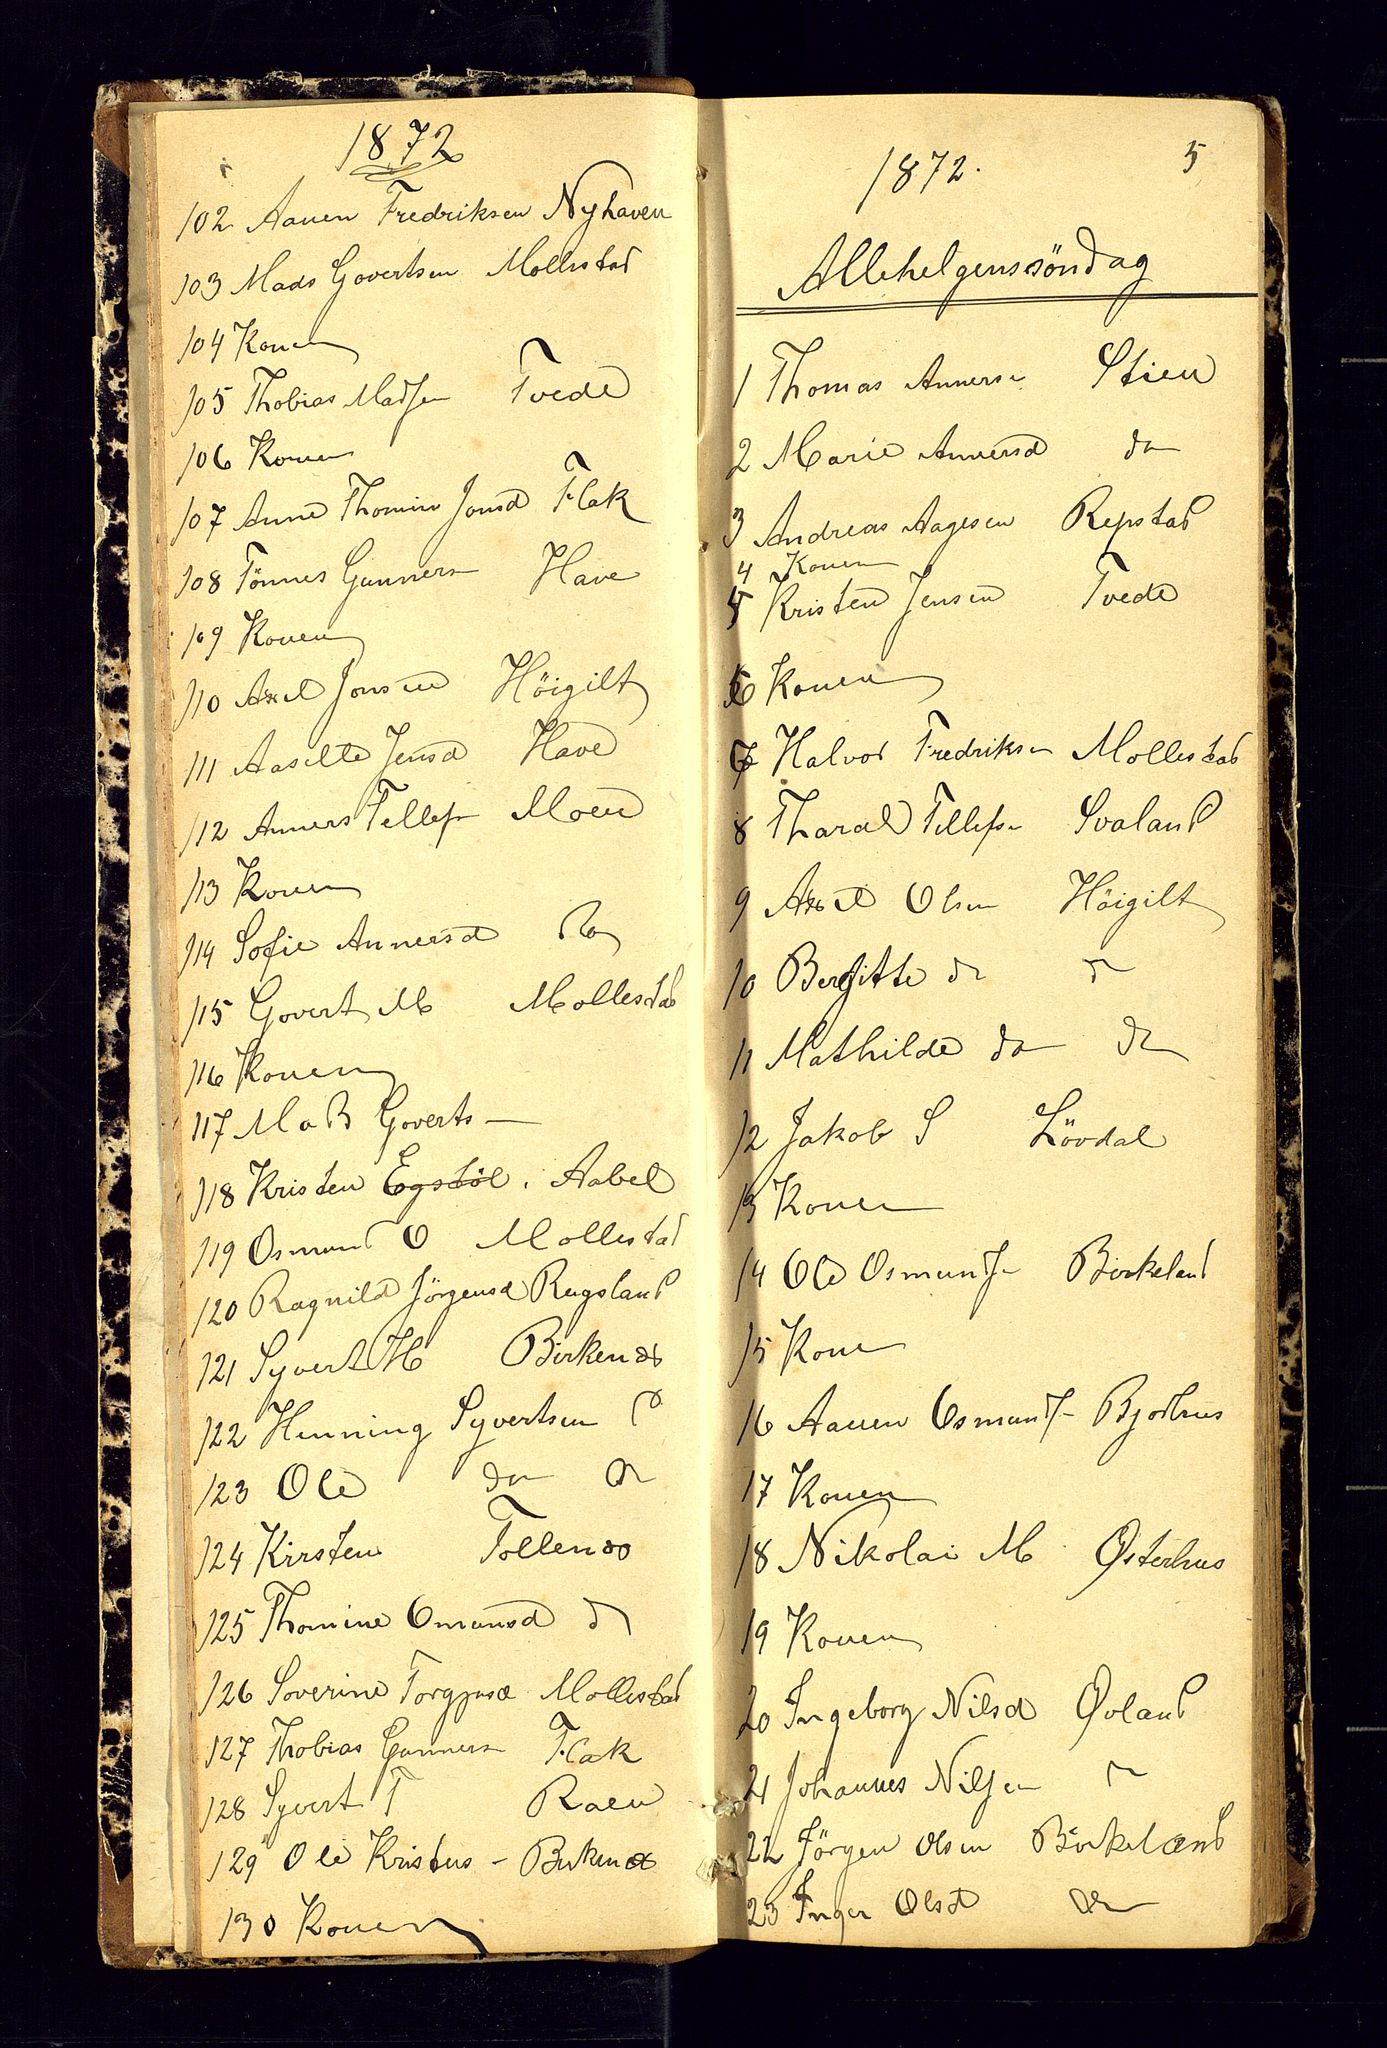 1872
102 Aanen Fredriksen Nyhaven
103 Mads Govertsen Mollestad
104 Konen
105 Thobias Madsen Tvede
106 Konen
107 Anne Thomine Jensd Flak
108 Tönnes Gunners Have
109 Konen
110 Axel Jensen Höigilt
111 Aaselle Jensd Have
112 Anners Tellefs Moen
113 Konen
114 Sofie Annersd do
115 Govert M Mollestad
116 Konen
117 Mad Goverts –
118 Kristen Egstöl . Aabel
119 Osmund O Mollestad
120 Ragnild Jörgensd Rugsland
121 Syvert H Birkenæs
122 Henning Syvertsen d
123 Ole do do
124 Kirsten Tollenæs
125 Thomine Omunsd d
126 Soverine Torgjusd Mollestad
127 Thobias Gunners Flak
128 Syvert T Raen
129 Ole Kristens – Birkenæs
130 Konen
1872. 5
Allehelgenssöndag
1 Thomas Anners Stien
2 Marie Annersd do
3 Andreas Aagesen Repstad
4 Konen
5 Kristen Jensen Tvede
6 Konen
7 Halvor Fredriksen Mollestad
8 Tharald Tellefsen Svaland
9 Axel Olsen Höigilt
10 Bergitte do do
11 Mathilde do do
12 Jakob S Lövdal
13 Konen
14 Ole Osmunds Birkeland
15 Konen
16 Aanen Osmunds Bjorhus
17 Konen
18 Nikolai M Østerhus
19 Konen
20 Ingeborg Nilsd Øvland
21 Johannes Nilsen do
22 Jörgen Olsen Birkeland
23 Inger Olsd do